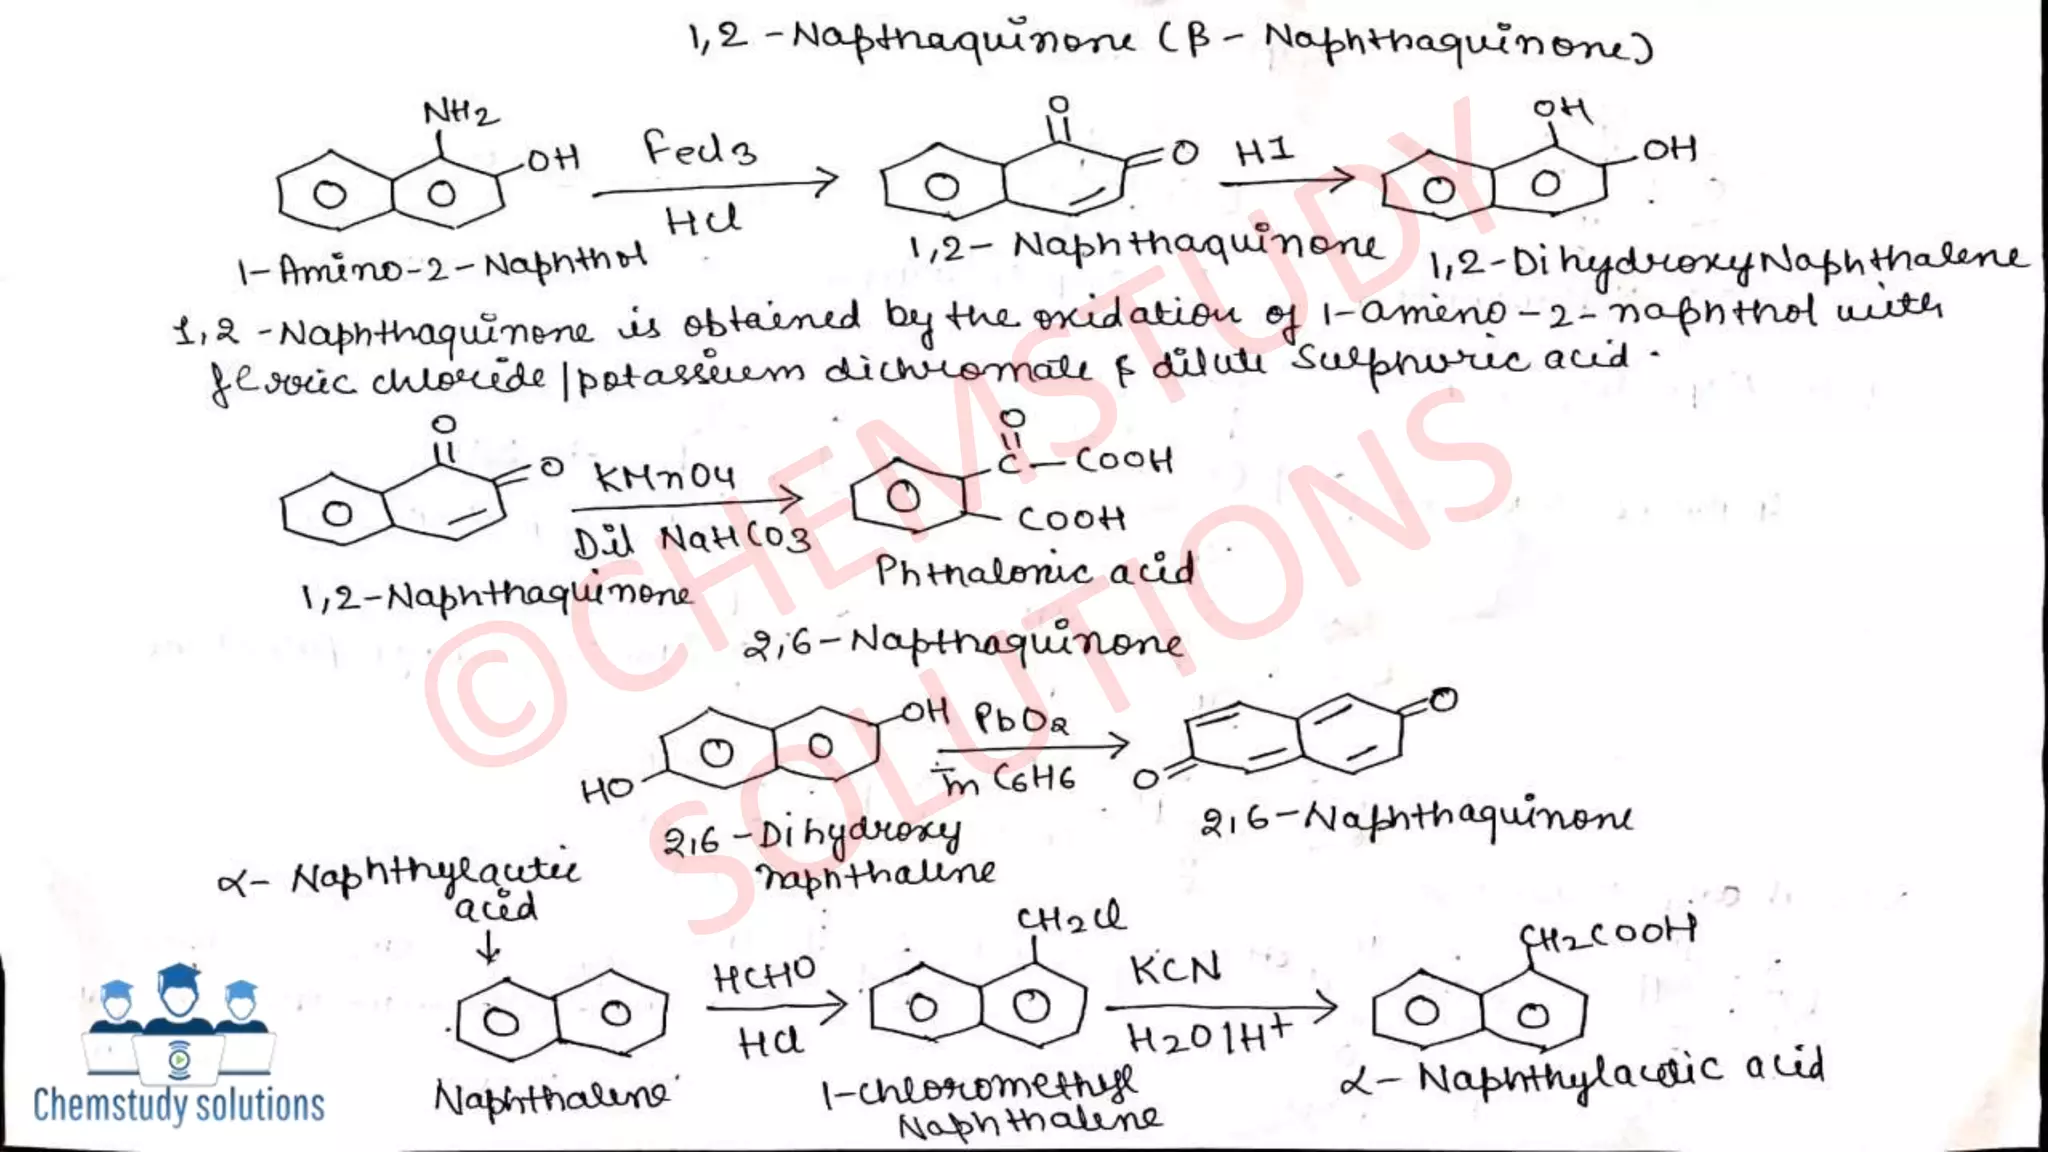 1,2 - Napthaquinone (β - Naphthaquinone)
NH2
OH
FeCl3
HCl
1-Amino-2-Naphthol
O
O
1,2- Naphthaquinone
HI
OH
OH
1,2-DihydroxyNaphthalene
1,2 -Naphthaquinone is obtained by the oxidation of 1-amino-2-naphthol with
ferric chloride/potassium dichromate & dilute Sulphuric acid.
O
O
1,2-Naphthaquinone
KMnO4
Dil NaHCO3
O
C-COOH
COOH
Phthalonic acid
2,6-Napthaquinone
OH
HO
2,6-Dihydroxy
naphthalene
PbO2
In C6H6
O
O
2,6-Naphthaquinone
α- Naphthylacetic
acid
Naphthalene
HCHO
HCl
CH2Cl
1-chloromethyl
Naphthalene
KCN
H2O/H+
CH2COOH
α- Naphthylacetic acid
©CHEMSTUDY
SOLUTIONS
Chemstudy solutions